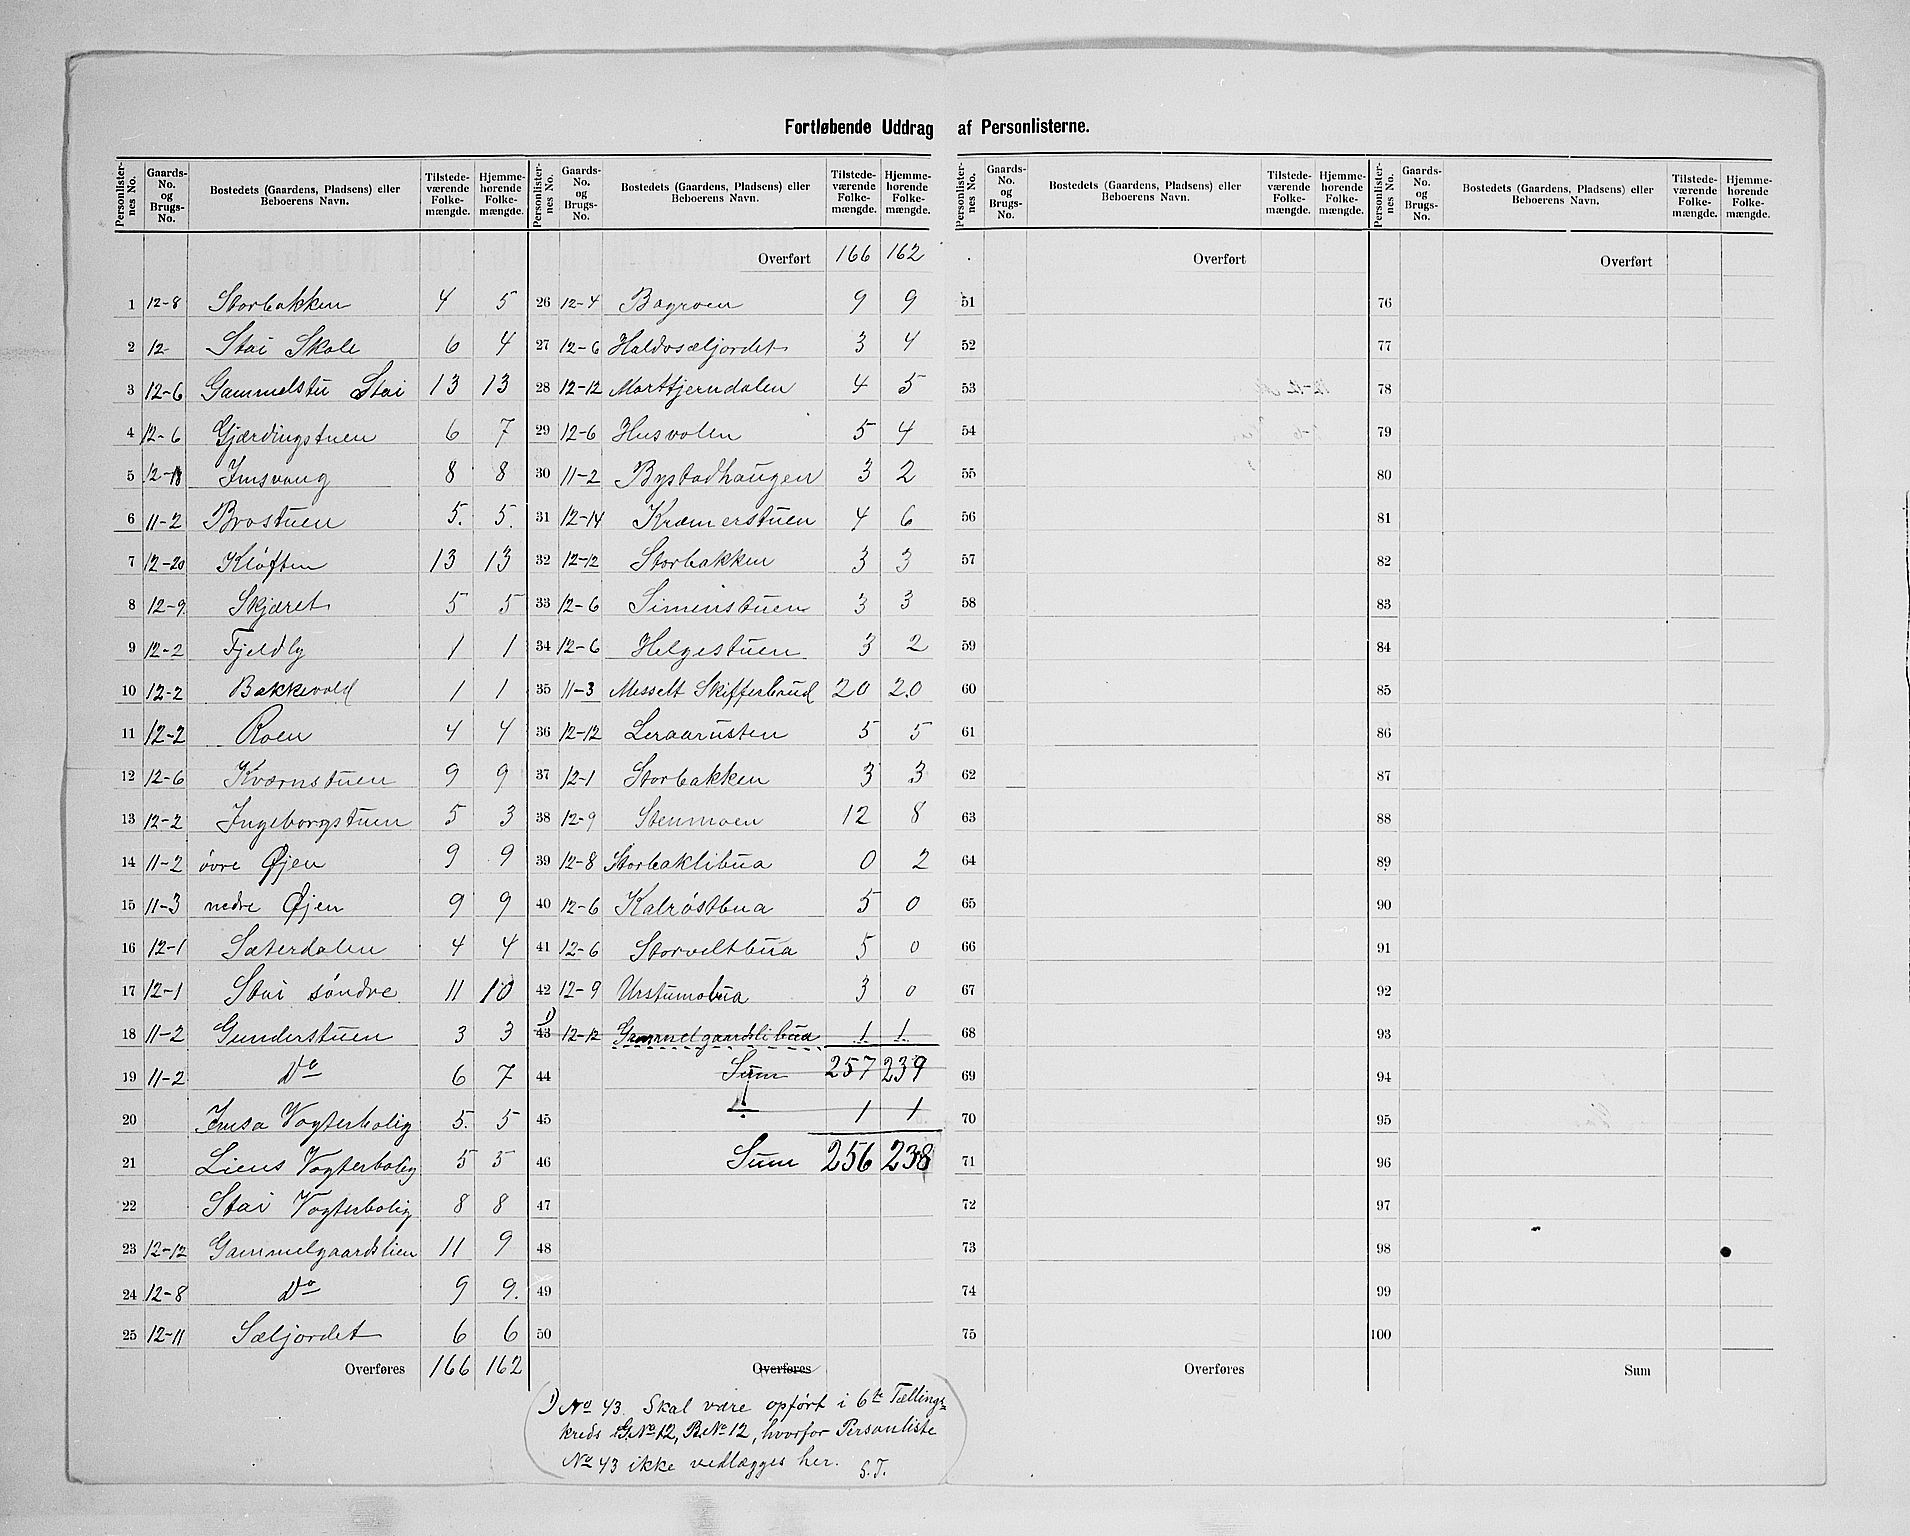 Fortløbende Uddrag af Personlisterne.
Personlisternes No. | Gaards-No. og Brugs-No. | Bostedets (Gaardens, Pladsens) eller Beboerens Navn. | Tilstedeværende Folkemængde. | Hjemmehørende Folkemængde.
1 12-8 Storbakken 4 5
2 12- Stai Skole 6 4
3 12-6 Gammelstu Stai 13 13
4 12-6 Gjærdingstuen 6 7
5 12-18 Imsvang 8 8
6 11-2 Brostuen 5. 5.
7 12-20 Kløften 13 13
8 12-9. Skjæret 5 5
9 12-2 Fjeldly 1 1
10 12-2 Bakkevold 1 1
11 12-2 Roen 4 4
12 12-6 Kværnstuen 9 9
13 12-2 Ingeborgstuen 5 3
14 11-2 øvre Øjen 9 9
15 11-3 nedre Øjen 9 9
16 12-1 Sæterdalen 4 4
17 12-1 Stai söndre 11 10
18 11-2 Gunderstuen 3 3
19 11-2 Do 6 7
20 Imsa Vogterbolig 5. 5
21 Liens Vogterbolig 5 5
22 Stai Vogterbolig 8 8
23 12-12 Gammelgaardslien 11 9
24 12-8 Do 9 9.
25 12-11 Sæljordet 6 6
Overføres 166 162
Personlisternes No. | Gaards-No. og Brugs-No. | Bostedets (Gaardens, Pladsens) eller Beboerens Navn. | Tilstedeværende Folkemængde. | Hjemmehørende Folkemængde.
Overført 166 162
26 12-4 Bagroen 9 9
27 12-6 Haldosæljordet 3 4
28 12-12 Morttjerndalen 4 5
29 12-6 Husvolen 5 4
30 11-2 Bystadhaugen 3 2
31 12-14 Kræmerstuen 4 6
32 12-12 Storbakken 3 3
33 12-6 Simenstuen 3 3
34 12-6 Helgestuen 3 2
35 11-3 Messelt Skifferbrud 20 20
36 12-12 Leraarusten 5 5
37 12-1 Storbakken 3 3
38 12-9 Stenmoen 12 8
39 12-8 Storbaklibua 0 2
40 12-6 Kalrøstbua 5 0
41 12-6 Storveltbua 5 0
42 12-9 Urstumobua 3 0
1) 43 12-12 Gammelgaardslibua 1 1
44 Sum 257 239
45 1 1
46 Sum 256 238
47
48
49
50
Overføres
1) No 43. Skal være opført i 6te Tællings-
kreds G.No 12, B.No 12, hvorfor Personliste
No 43 ikke vedlægges her. S.T.
Personlisternes No. | Gaards-No. og Brugs-No. | Bostedets (Gaardens, Pladsens) eller Beboerens Navn. | Tilstedeværende Folkemængde. | Hjemmehørende Folkemængde.
Overført
51
52
53
54
55
56
57
58
59
60
61
62
63
64
65
66
67
68
69
70
71
72
73
74
75
Overføres
Personlisternes No. | Gaards-No. og Brugs-No. | Bostedets (Gaardens, Pladsens) eller Beboerens Navn. | Tilstedeværende Folkemængde. | Hjemmehørende Folkemængde.
Overført
76
77
78
79
80
81
82
83
84
85
86
87
88
89
90
91
92
93
94
95
96
97
98
99
100
Sum